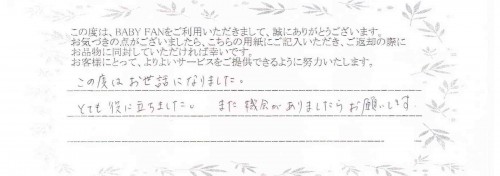 この度は、BABY FANをご利用いただきまして、誠にありがとうございます。
お気づきの点がございましたら、こちらの用紙にご記入いただき、ご返却の際に
お品物に同封していただければ幸いです。
お客様にとって、よりよいサービスをご提供できるように努力いたします。
この度はお世話になりました。
とても役に立ちました。 また機会がありましたらお願いします。